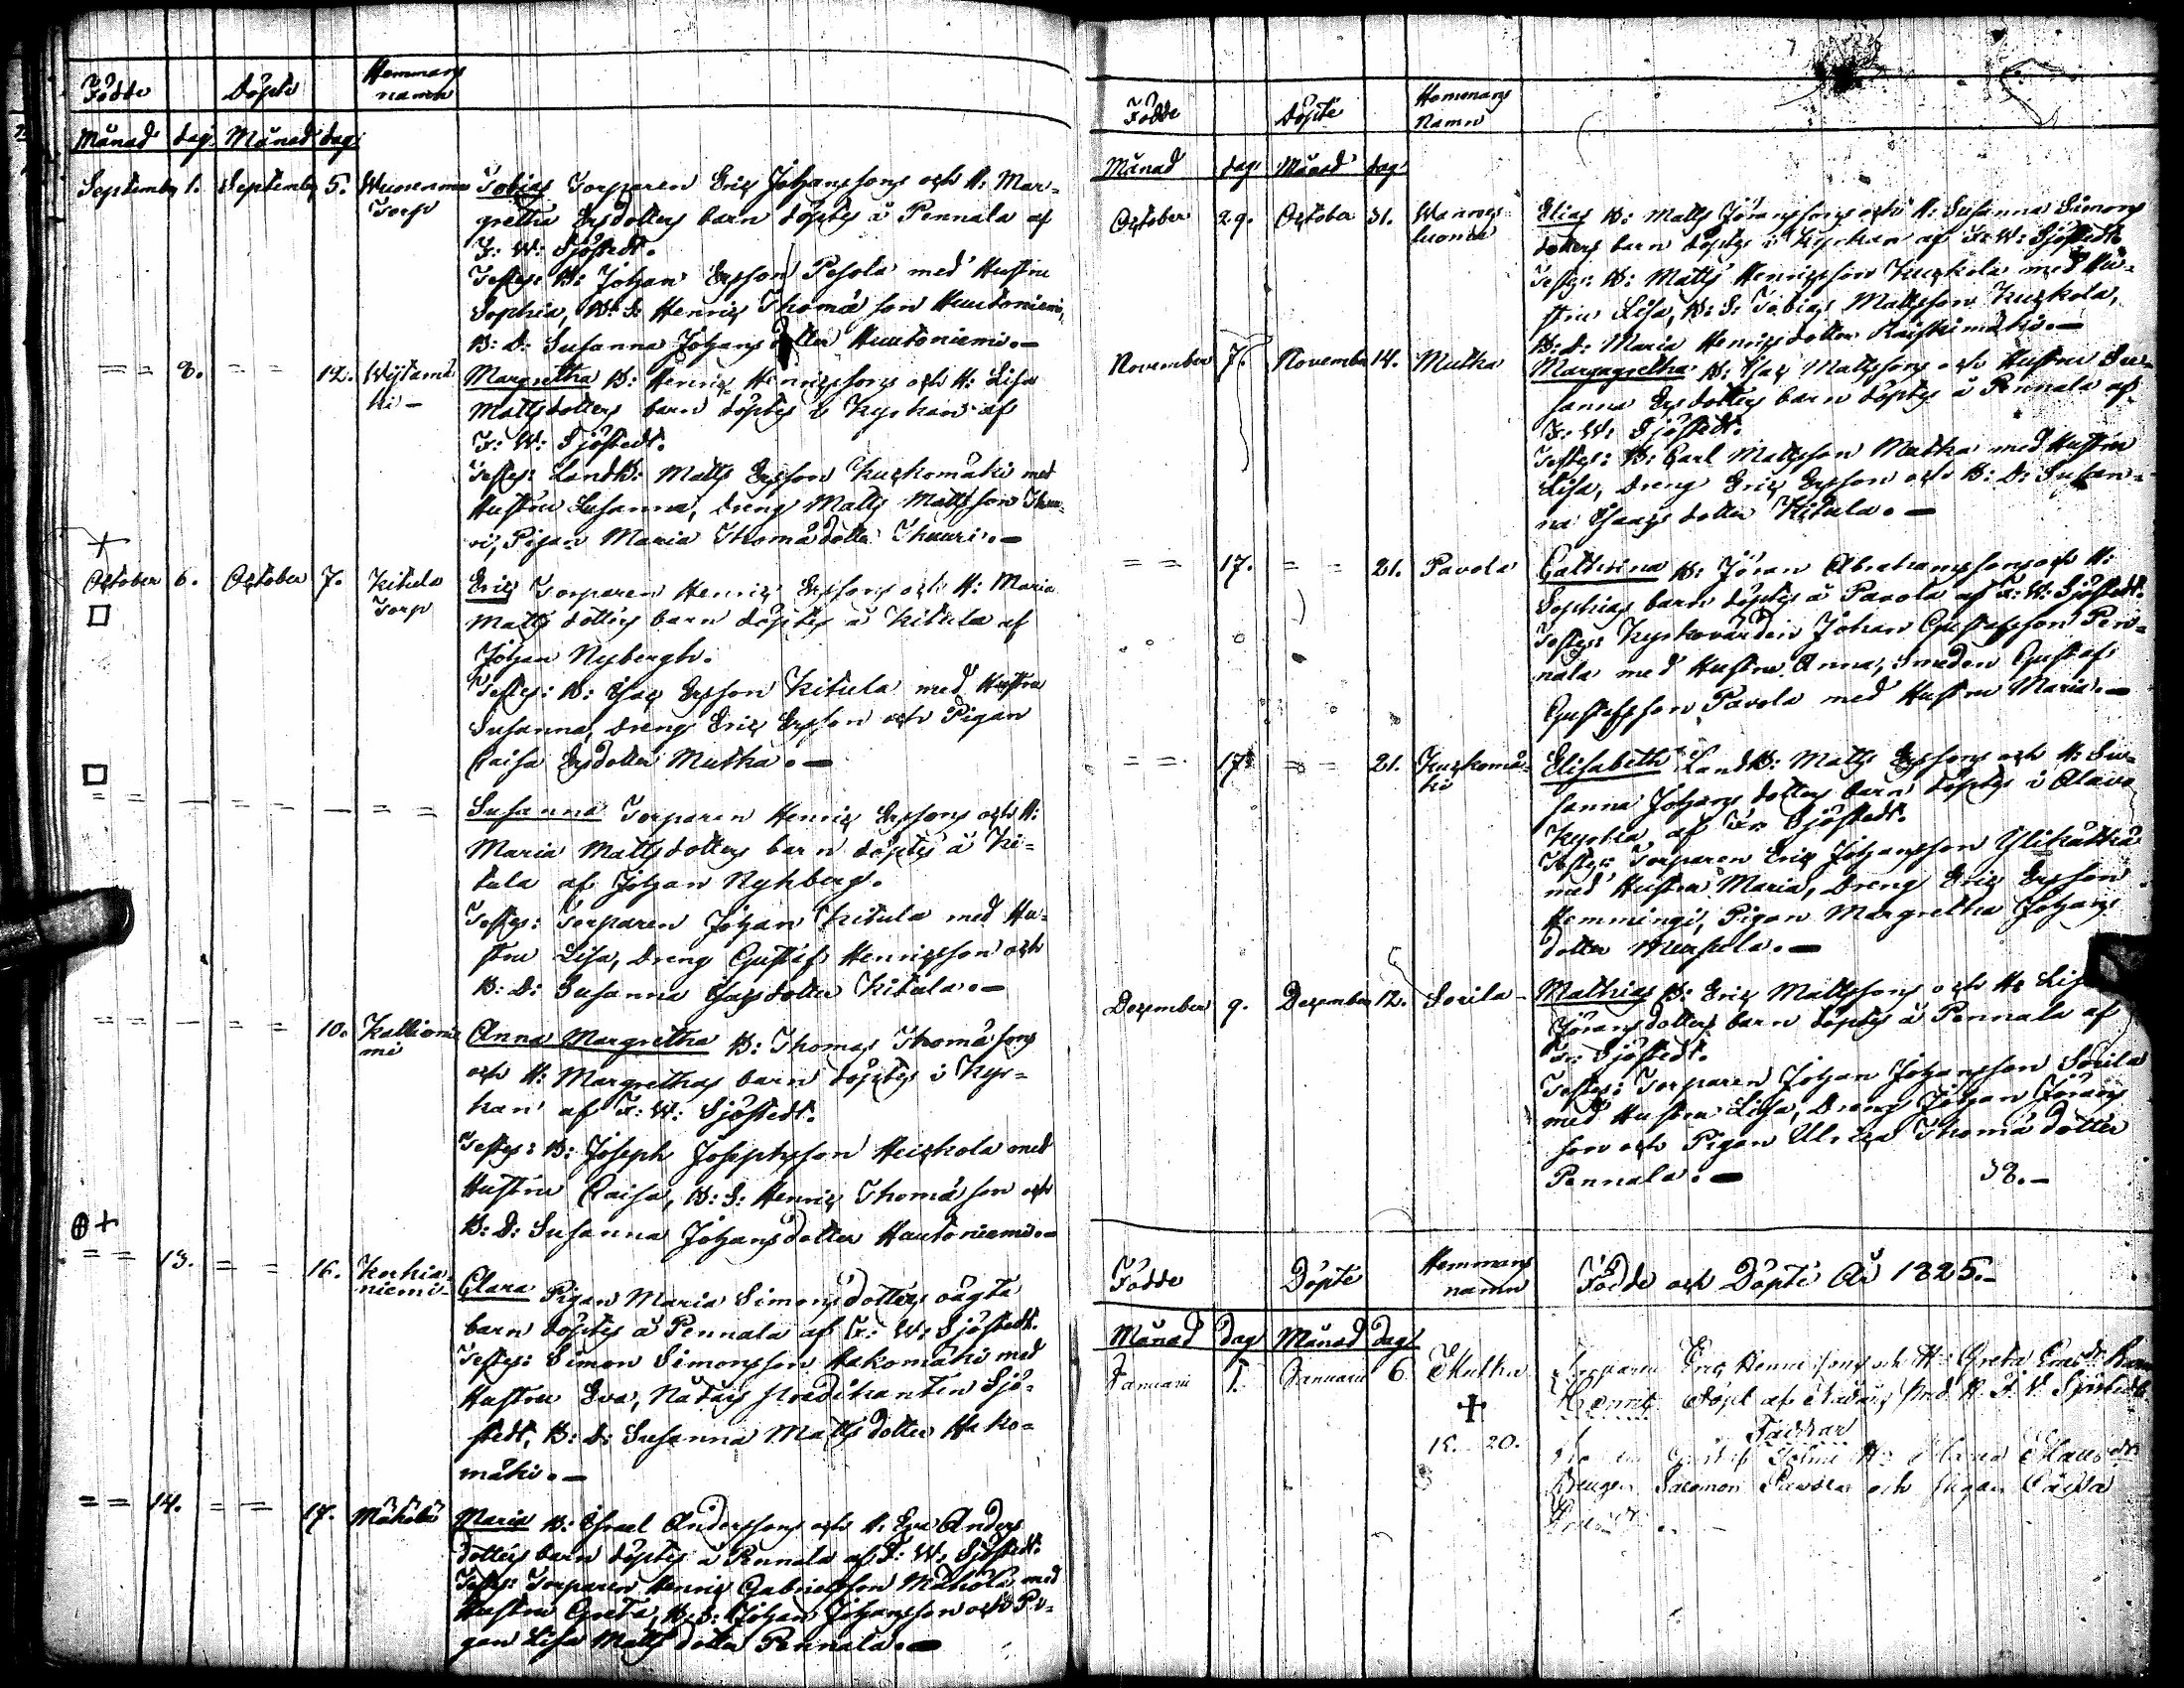 Födde Döpte Hemmans
namn
Månad dag. Månad dag.
September 1. September 5. Wuorenmaa Torp Tobias Torparen Eric Johanssons och H: Mar-
gretha Ersdotters barn döptes å Pennala af
F: W: Sjöstedt.
Testes: B: Johan Ersson Pesola med Hustru
Sophia, B: S: Henric Thomæson Huutoniemi,
B: D: Susanna Johansdotter Huutoniemi.—
= = 8. = = 12. Wijtamäki — Margretha B: Henric Henricssons och H: Lisa
Mattsdotters barn döptes i Kyrkan af
F: W: Sjöstedt.
Testes: LandB: Matts Ersson Kuckomäki med
Hustru Susanna, Dreng Matts Mattsson Thuu-
ri, Pigan Maria Thomædotter Thuuri.—
October 6. October 7. Kitula Torp Eric Torparen Henric Erssons och H: Maria
Mattsdotters barn döptes å Kitula af
Johan Nybergh.
Testes: B: Isac Ersson Kitula med Hustru
Susanna, Dreng Eric Ersson och Pigan
Caisa Ersdotter Mutka.—
= = — = = — = = Susanna Torparen Henric Erssons och H:
Maria Mattsdotters barn döptes å Ki-
tula af Johan Nykberg.
Testes: Torparen Johan Kitula med Hu-
stru Lisa, Dreng Gustaf Henricsson och
B: D: Susanna Isacsdotter Kitula.—
= = — = = 10. Kallioniemi Anna Margretha B: Thomas Thomæsons
och H: Margrethas barn döptes i Kyr-
kan af F: W: Sjöstedt.
Testes: B: Joseph Josephsson Heickola med
Hustru Caisa, B: S: Henric Thomæson och
B: D: Susanna Johansdotter Hautoniemi.—
= = 13. = = 16. Korkianiemi — Clara Pigan Maria Simonsdotters oägta
barn döptes å Pennala af F: W: Sjöstedt.
Testes: Simon Simonsson Hakomäki med
Hustru Eva, Nådårs predikanten Sjö-
stedt, B: D: Susanna Mattsdotter Hako-
mäki.—
= = 14. = = 17. Mäkelä Maria B: Israel Anderssons och H: Eva Anders
dotters barn döptes å Pennala af F: W: Sjöstedt.
Testes: Torparen Henric Gabrielsson Mäkölä med
Hustru Greta, B: S: Johan Johansson och Pi-
gan Lisa Mattsdotter Pennala.—
Födde Döpte Hemmans
Namn
Månad dag. Månad dag.
October 29. October 31. Elias B: Matts Göranssons och H: Susanna Simons
dotters barn döptes i Kyrkan af F: W: Sjöstedt.
Testes: B: Matts Henricsson Kuckola med Hu-
stru Lisa, B: S: Tobias Mattsson Kuckola,
B: D: Maria Henricsdotter Raiskimäki.—
November 7. November 14. Mutka Margagretha B: Isac Mattssons och Hustru Su-
sanna Ersdotters barn döptes å Pennala af
F: W: Sjöstedt.
Testes: B: Carl Mattsson Mutka med Hustru
Lisa, Dreng Eric Ersson och B: D: Susan-
na Isacsdotter Kitula.—
= = 17. = = 21. Pavola Catherina B: Jöran Abrahamssons och H:
Sophias barn döptes å Pavola af F: W: Sjöstedt.
Testes: Kyrkovärden Johan Gustafsson Pen-
nala med Hustru Anna, Smeden Gustaf
Gustafsson Pavola med Hustru Maria.—
= = 17. = = 21. Kuckomäki Elisabeth LandB: Matts Erssons och H: Su-
sanna Johansdotters barn döptes i Alavo
Kyrka af Fr: Sjöstedt.
Testes: Torparen Eric Johansson Ylikätkä
med Hustru Maria, Dreng Eric Ersson
Hemmingi, Pigan Margretha Johans
dotter
December 9. December 12. Sorila — Mathias B: Eric Mattssons och H: Lis
Jöransdotters barn döptes å Pennala af
Fr: Sjöstedt.
Testes: Torparen Johan Johansson Sorila
med Hustru Lisa, Dreng Johan Jörans
son och Pigan Ulrica Thomædotter
Pennala.— 38.—
Födde Döpte Hemmans
namn Födde och Döpte År 1825.—
Månad Dag Månad Dag
Januari 1. Januarii 6 Mutka Torparen Eric Henricssons och H: Greta
Henric Döpt af
Faddrar
Gustaf H: Maria
Drengen Salomon och Pigan Caisa